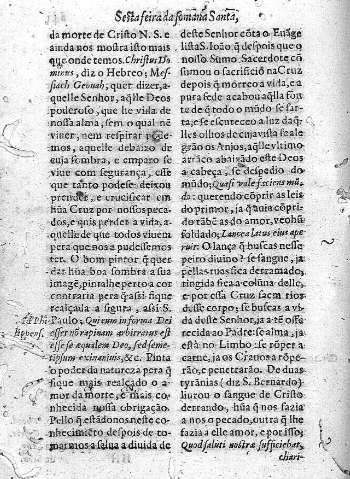 Sesta feira da somana Santa,
da morte de Cristo N. S. e
ainda nos mostra isto mais
que onde temos. Christus Do-
minus, diz o Hebreo; Mes-
siach Geouah; quer dizer, a-
quelle Senhor, aq̃lle Deos
poderoso, que lhe vida de
nossa alma, sem o qual nẽ
viuer, nem respirar podẽ-
mos, aquelle debaixo de
cuja sombra, e emparo se
viue com segurança, esse
que tanto pode se deixou
prender, e crucificar em
hũa Cruz por nossos peca-
dos, e quis perder a vida, a-
quelle de que todos viuem
pera que nos a pudessemos
ter. O bom pintor q̃ quer
dar hũa boa sombra a sua
imagẽ, pinta lhe perto a cor
contraria pera q̃ assi fique
realçada a figura, assi S.
Paulo, Qui cum in forma Dei
esset non rapinam arbitratus est
esse se æqualem Deo, sed seme-
tipsum exinaniuit, &c. Pinta
o poder da natureza pera q̃
fique mais realçado o a-
mor da morte, e mais co-
nhecida nossa obrigação.
Pello q̃ estãdo nos neste co-
nhecimẽto despois de to-
marmos a salua a diuida de
ad Phi-
lippens.
deste Senhor cõta o Euãge
lista S. Ioão q̃ despois que o
nosso Sumo Sacerdote cõ
sumou o sacrificio na Cruz
depois q̃ morreo a vida, e a
pura sede acabou aq̃lla fon
te de q̃ todo o mũdo se far-
ta, e se escureceo a luz daq̃-
lles olhos de cuja vista se ale
grão os Anjos, aq̃lle vltimo
arrãco abaixãdo este Deos
a cabeça, se despedio do
mũdo; Quasi vale faciens mũ-
do: querendo cõprir as leis
do primor, ja q̃ auia cõpri-
do tãbẽ as do amor, veo hũ
soldado; Lancea latus eius ape
ruit: O lança q̃ buscas nesse
peito diuino? se sangue, ja
pellas ruas fica derramado,
tingida fica a coluna delle,
e por essa Cruz saem rios
desse corpo; se buscas a vi-
da deste Senhor, ja a tẽ offe
recida ao Padre: se alma, ja
està no Limbo: se rõper a
carne, ja os Crauos a rõpe-
rão, e penetrarão. De duas
tyrânias (diz S. Bernardo)
liurou o sangue de Cristo
derrando, hũa q̃ nos fazia
a nos o pecado, outra q̃ lhe
fazia a elle amor, e por isso;
Quod saluti nostræ sufficiebat,
chari-